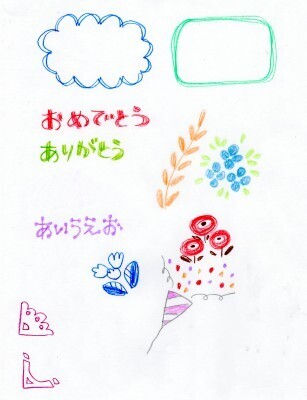 おめでとう
ありがとう
あいうえお